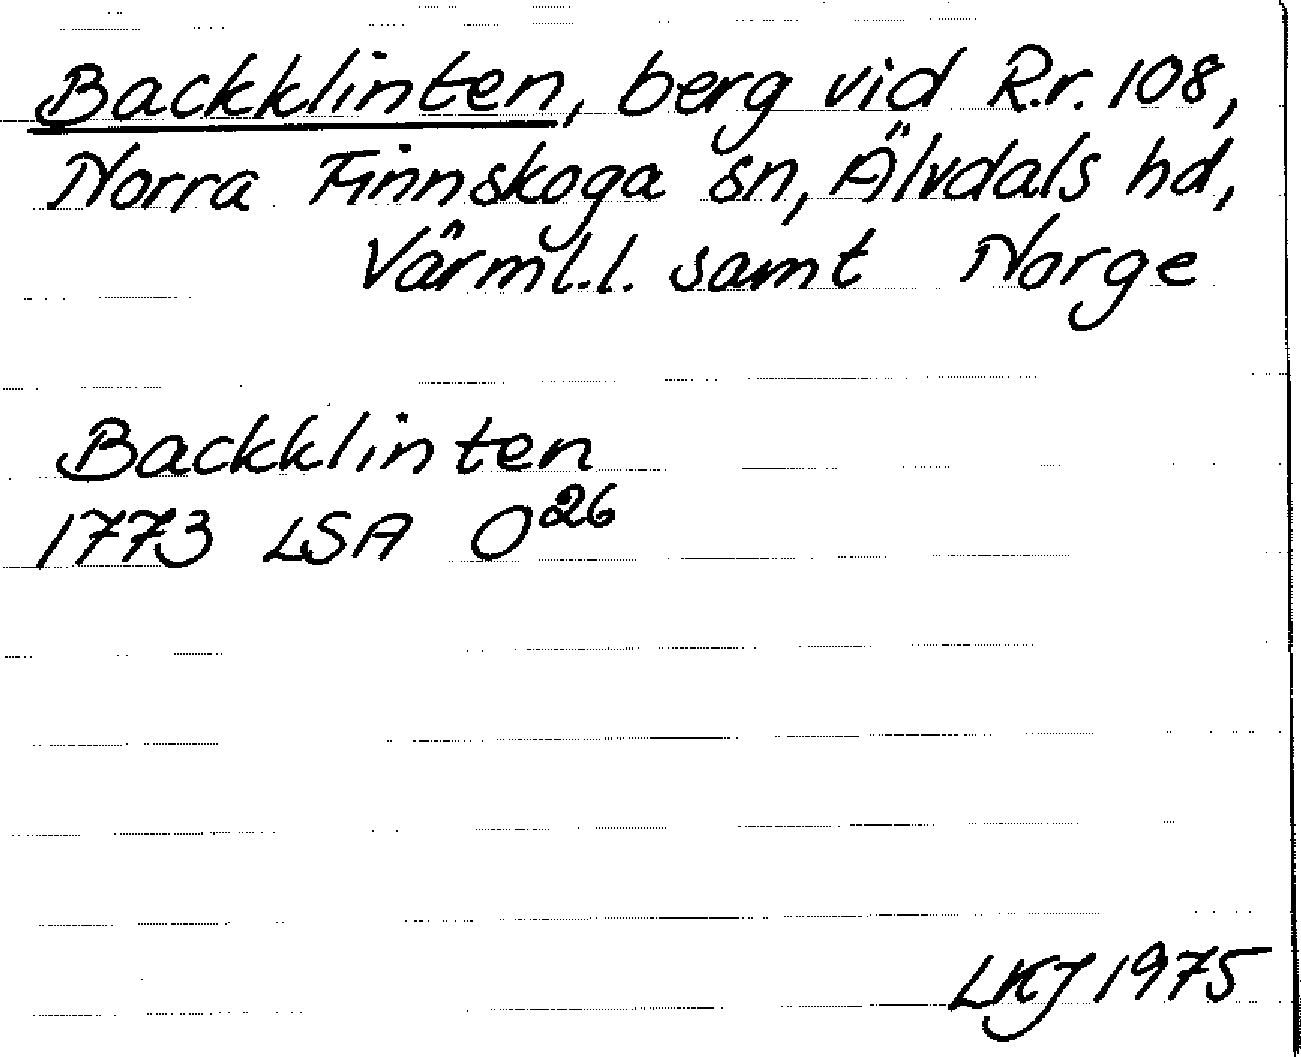 Backklinten, berg vid R.r. 108,
Norra Finnskoga sn, Älvdals hd,
Värml.l. samt Norge
Backklinten
1773 LSA O²⁶
LKJ 1975